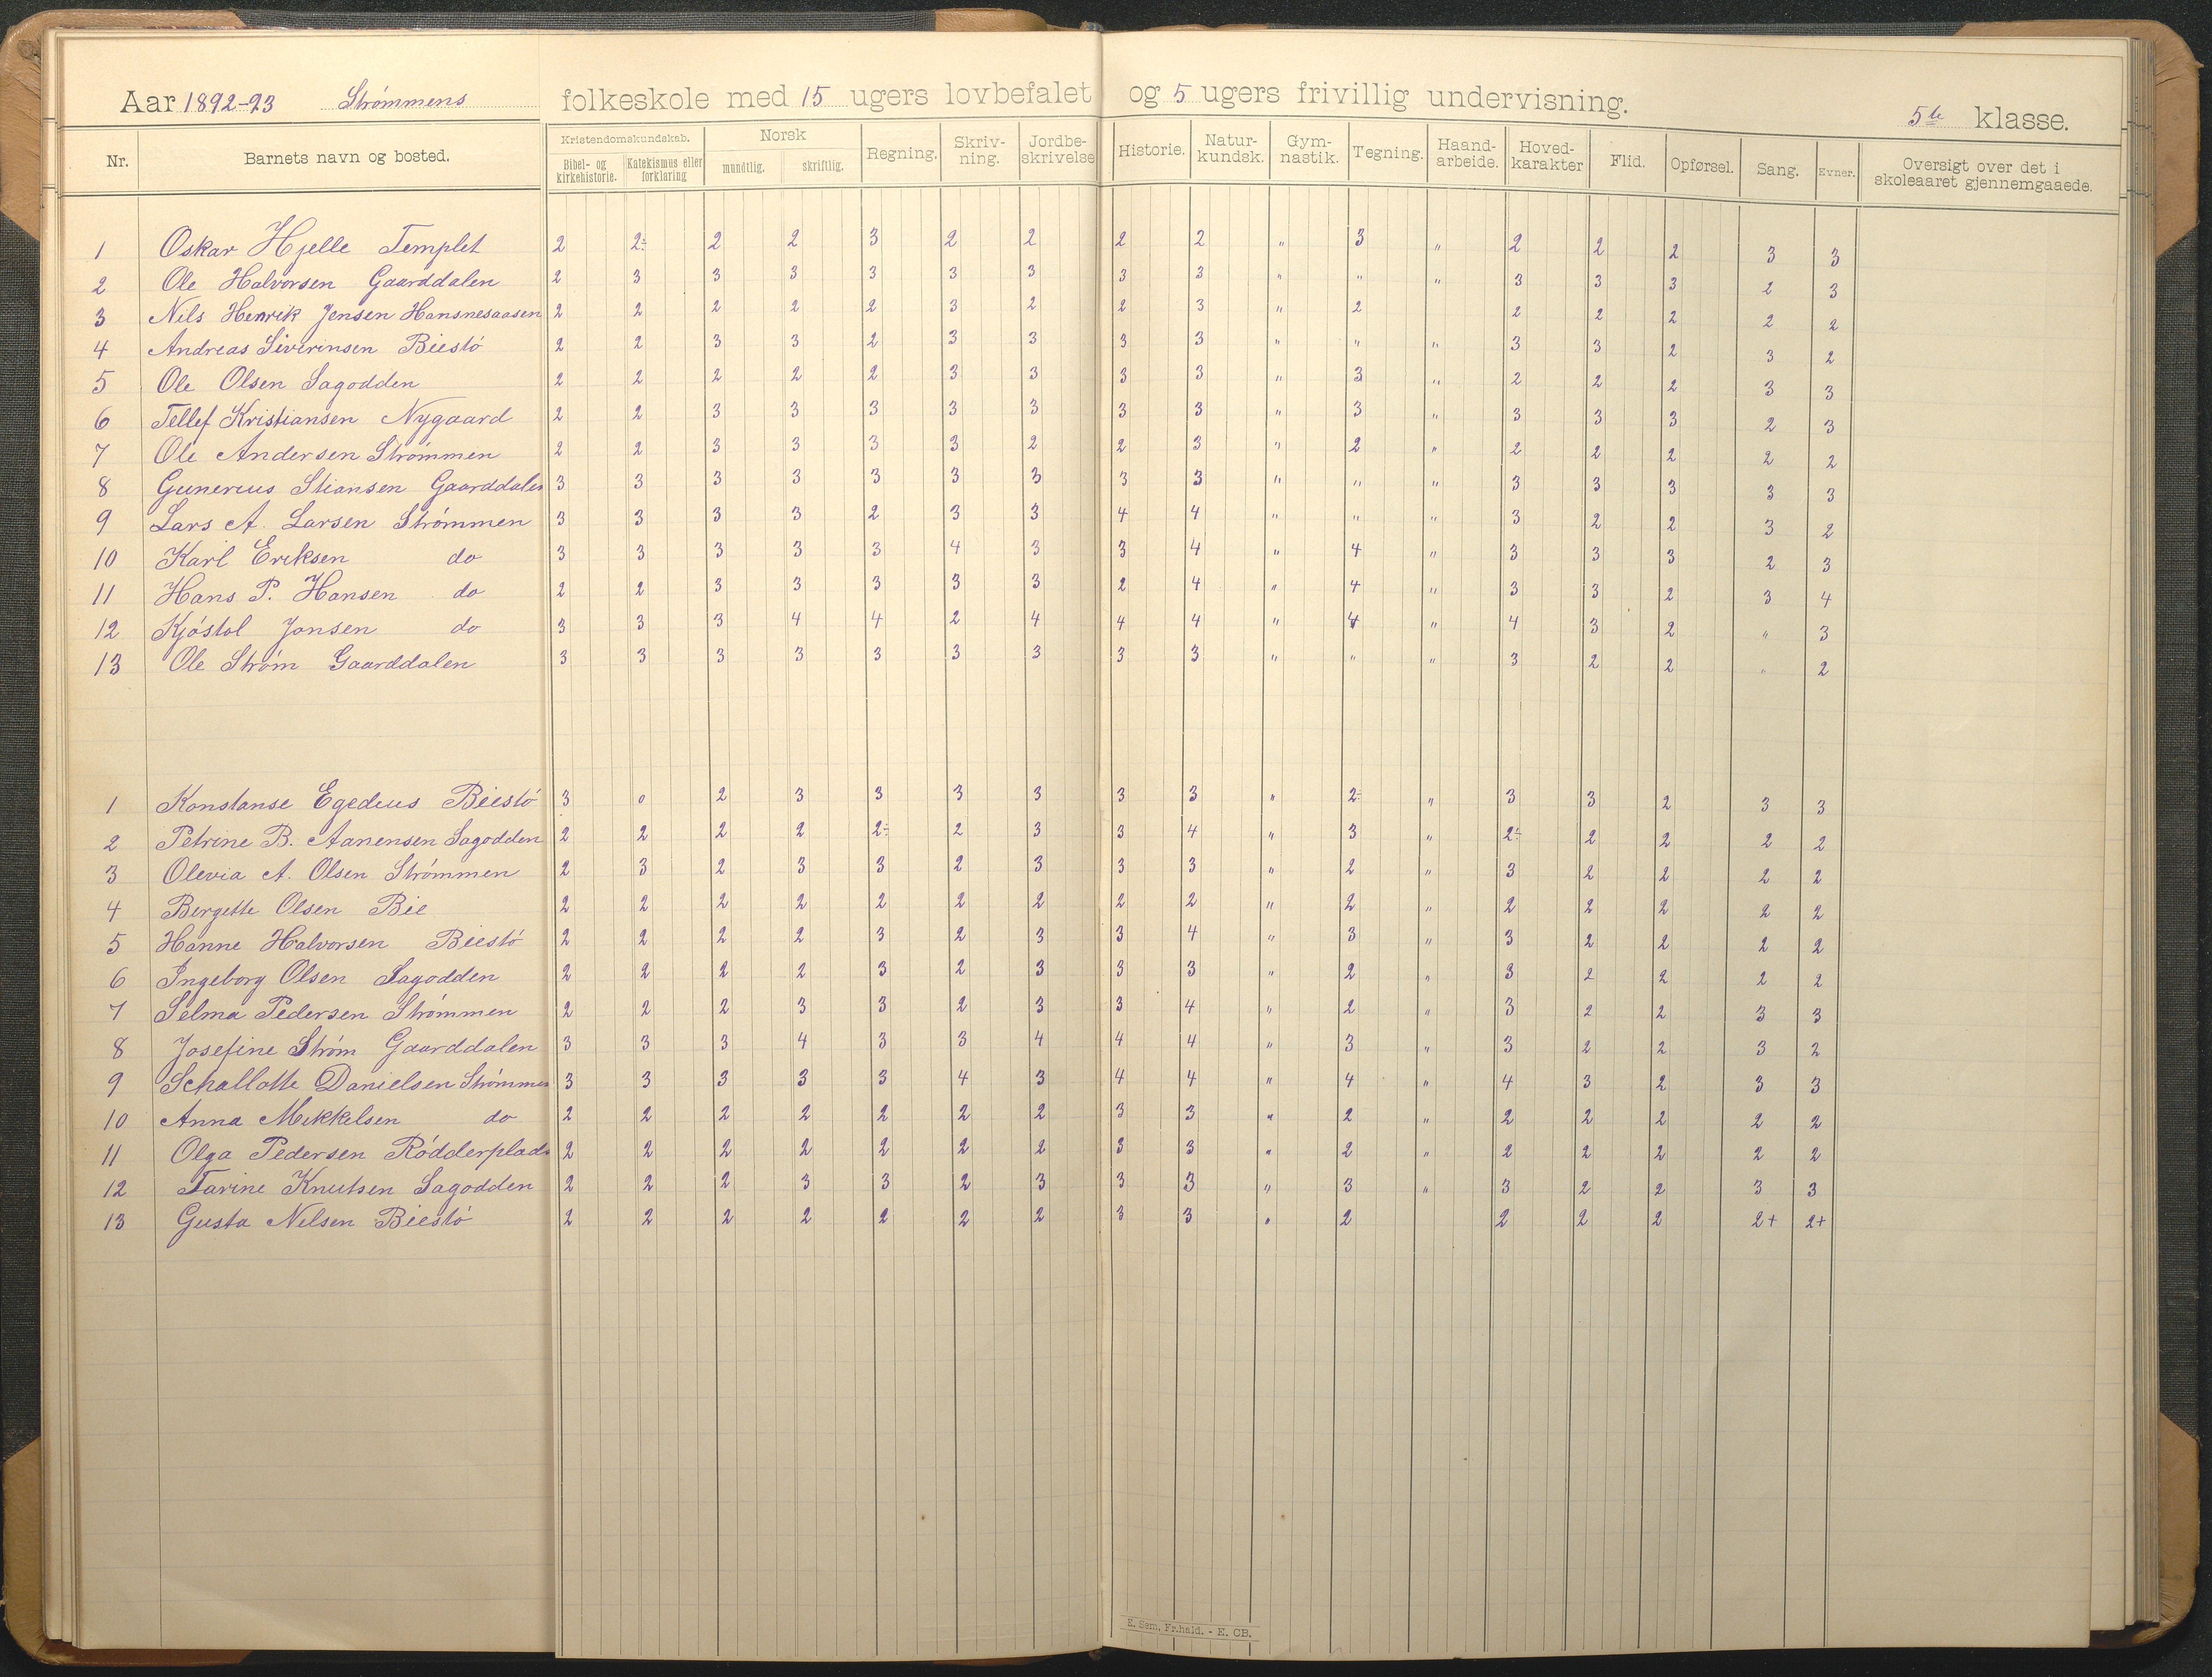 Aar 1892-93 Strømmens folkeskole med 15 ugers lovbefalet og 5 ugers frivillig undervisning. 5te klasse.
Nr. Barnets navn og bosted. Kristendomskundskab. Bibel- og kirkehistorie. Katekismus eller forklaring Norsk mundtlig. skriftlig. Regning. Skriv-ning. Jordbe-skrivelse Historie. Natur-kundsk. Gym-nastik. Tegning. Haand-arbeide. Hoved-karakter Flid. Opførsel. Sang. Evner. Oversigt over det i skoleaaret gjennemgaaede.
1 Oskar Hjelle Templet 2 2÷ 2 2 3 2 2 2 2 " 3 " 2 2 2 3 3
2 Ole Halvorsen Gaarddalen 2 3 3 3 3 3 3 3 3 " " " 3 3 3 2 3
3 Nils Henrik Jensen Hansnesaasen 2 2 2 2 2 3 2 2 3 " 2 2 2 2 2 2
4 Andreas Siverinsen Biestø 2 2 3 3 2 3 3 3 3 " " " 3 3 2 3 2
5 Ole Olsen Sagodden 2 2 2 2 2 3 3 3 3 " 3 " 2 2 2 3 3
6 Tellef Kristiansen Nygaard 2 2 3 3 3 3 3 3 3 " 3 " 3 3 3 2 3
7 Ole Andersen Strømmen 2 2 3 3 3 3 2 2 3 " 2 " 2 2 2 2 2
8 Gunerius Stiansen Gaarddalen 3 3 3 3 3 3 3 3 3 " " " 3 3 3 3 3
9 Lars A. Larsen Strømmen 3 3 3 3 2 3 3 4 4 " " " 3 2 2 3 2
10 Karl Eriksen do 3 3 3 3 3 4 3 3 4 " 4 " 3 3 3 2 3
11 Hans P. Hansen do 2 2 3 3 3 3 3 2 4 " 4 " 3 3 2 3 4
12 Kjøstol Jonsen do 3 3 3 4 4 2 4 4 4 " 4 " 4 3 2 " 3
13 Ole Strøm Gaarddalen 3 3 3 3 3 3 3 3 3 " " " 3 2 2 " 2
1 Konstanse Egedius Biestø 3 0 2 3 3 3 3 3 3 " 2÷ " 3 3 2 3 3
2 Petrine B. Aanensen Sagodden 2 2 2 2 2÷ 2 3 3 4 " 3 " 2÷ 2 2 2 2
3 Olevia A. Olsen Strømmen 2 3 2 3 3 2 3 3 3 " 2 " 3 2 2 2 2
4 Bergette Olsen Bie 2 2 2 2 2 2 2 2 2 " 2 " 2 2 2 2 2
5 Hanne Halvorsen Biestø 2 2 2 2 3 2 3 3 4 " 3 " 3 2 2 2 2
6 Ingeborg Olsen Sagodden 2 2 2 2 3 2 3 3 3 " 2 " 3 2 2 2 2
7 Selma Pedersen Strømmen 2 2 2 3 3 2 3 3 4 " 2 " 3 2 2 3 3
8 Josefine Strøm Gaarddalen 3 3 3 4 3 3 4 4 4 " 3 " 3 2 2 3 2
9 Schallotte Danielsen Strømmen 3 3 3 3 3 4 3 4 4 " 4 " 4 3 2 3 3
10 Anna Mikkelsen do 2 2 2 2 2 2 2 3 3 " 2 " 2 2 2 2 2
11 Olga Pedersen Rødderplads 2 2 2 2 2 2 2 3 3 " 2 " 2 2 2 2 2
12 Tarine Knutsen Sagodden 2 2 2 3 3 2 3 3 3 " 3 " 3 2 2 3 3
13 Gusta Nilsen Biestø 2 2 2 2 2 2 2 3 3 " 2 2 2 2 2+ 2+
E. Sem, Fr.hald. - E. CB.